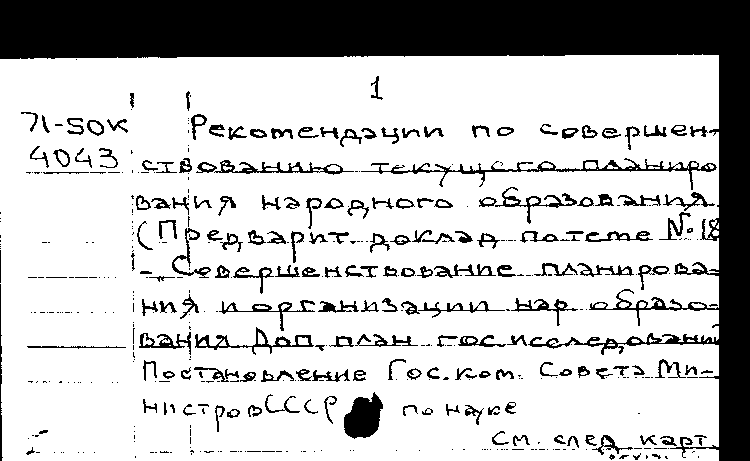 1
71-50К Рекомендации по совершен-
4043 ствованию текущего планиро
вания народного образования
(Предварит. доклад по теме № 18
- „Совершенствование планирова-
ния и организации нар. образо-
вания Доп. план гос. исследований
Постановление Гос. ком. Совета Ми-
нистров СССР по науке
См. след. карт.